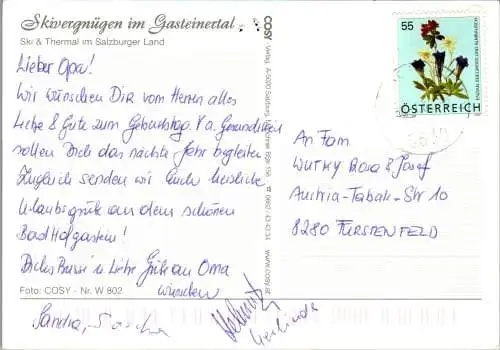 Skivergnügen im Gasteinertal
Ski & Thermal im Salzburger Land
Lieber Opa!
Wir wünschen Dir vom Herzen alles
Liebe & Gute zum Geburtstag. V.a. Gesundheit
sollen Dich das nächste Jahr begleiten
Zugleich senden wir Euch herzliche
Urlaubsgrüße aus dem schönen
Bad Hofgastein!
Dickes Bussi u Liebe Grüße an Oma
wünschen
Sandra, Sascha
Helmut
Gerlinde
Foto: COSY - Nr. W 802
COSY Verlag, A-5020 Salzburg
www.cosy.at
55
ÖSTERREICH
An Fam.
WUTKY Rosa & Josef
Austria-Tabak-Str 10
8280 FÜRSTENFELD